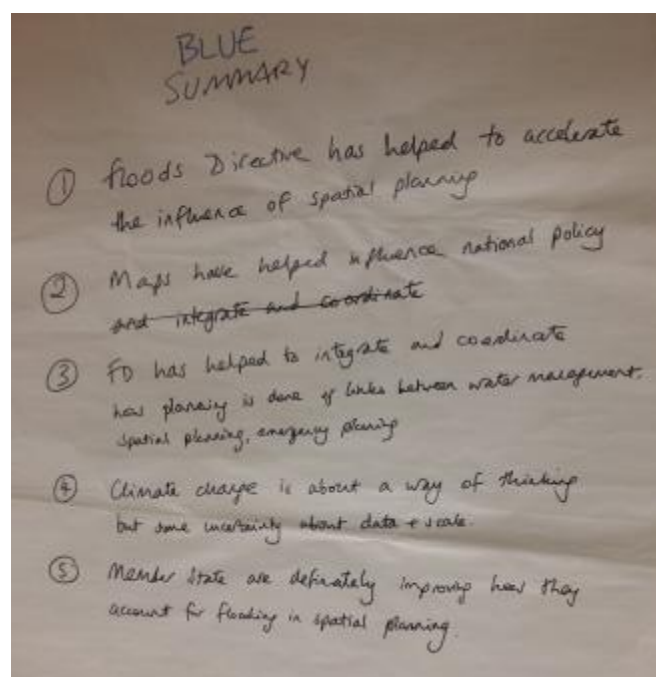 BLUE
SUMMARY
① Floods Directive has helped to accelerate
the influence of spatial planning
② Maps have helped influence national policy
and integrate and coordinate
③ FD has helped to integrate and coordinate
how planning is done & links between water management,
spatial planning, emergency planning
④ Climate change is about a way of thinking
but some uncertainty about data + scale.
⑤ Member State are definately improving how they
account for flooding in spatial planning.